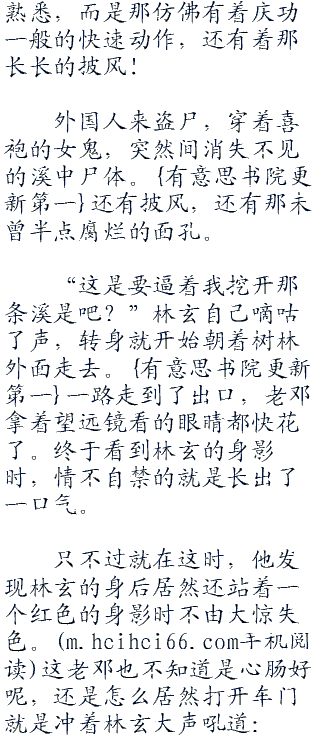 熟悉，而是那仿佛有着庆功
一般的快速动作，还有着那
长长的披风！
外国人来盗尸，穿着喜
袍的女鬼，突然间消失不见
的溪中尸体。{有意思书院更
新第一}还有披风，还有那未
曾半点腐烂的面孔。
“这是要逼着我挖开那
条溪是吧？”林玄自己嘀咕
了声，转身就开始朝着树林
外面走去。{有意思书院更新
第一}一路走到了出口，老邓
拿着望远镜看的眼睛都快花
了。终于看到林玄的身影
时，情不自禁的就是长出了
一口气。
只不过就在这时，他发
现林玄的身后居然还站着一
个红色的身影时不由大惊失
色。(m.hcihci66.com手机阅
读)这老邓也不知道是心肠好
呢，还是怎么居然打开车门
就是冲着林玄大声吼道：